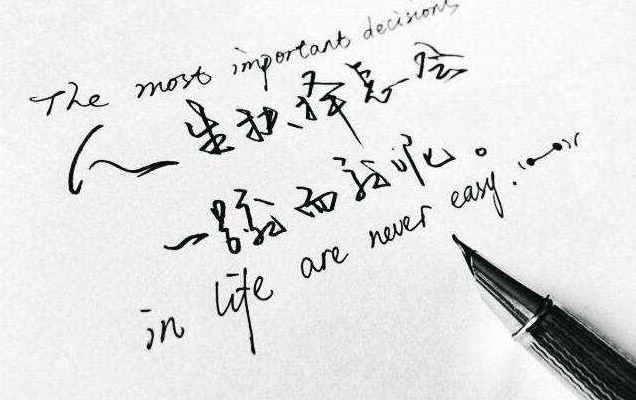 The most important decisions
人生抉择总会
一 而 。
in life are never easy.